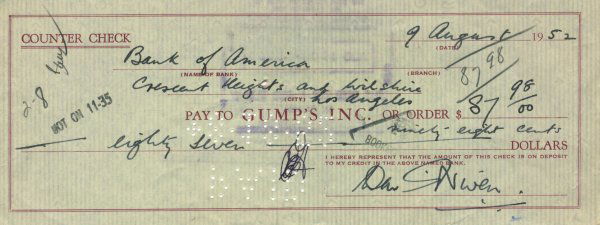 COUNTER CHECK
9 August 1952
(DATE)
Bank of America
(NAME OF BANK) (BRANCH)
87 98
Crescent Heights and Wilshire
(CITY) Los Angeles
28
NOT ON 11-35
PAY TO GUMP'S INC. OR ORDER $ 87 98/00
eighty seven ninety-eight cents
DOLLARS
I HEREBY REPRESENT THAT THE AMOUNT OF THIS CHECK IS ON DEPOSIT
TO MY CREDIT IN THE ABOVE NAMED BANK.
David Niven.